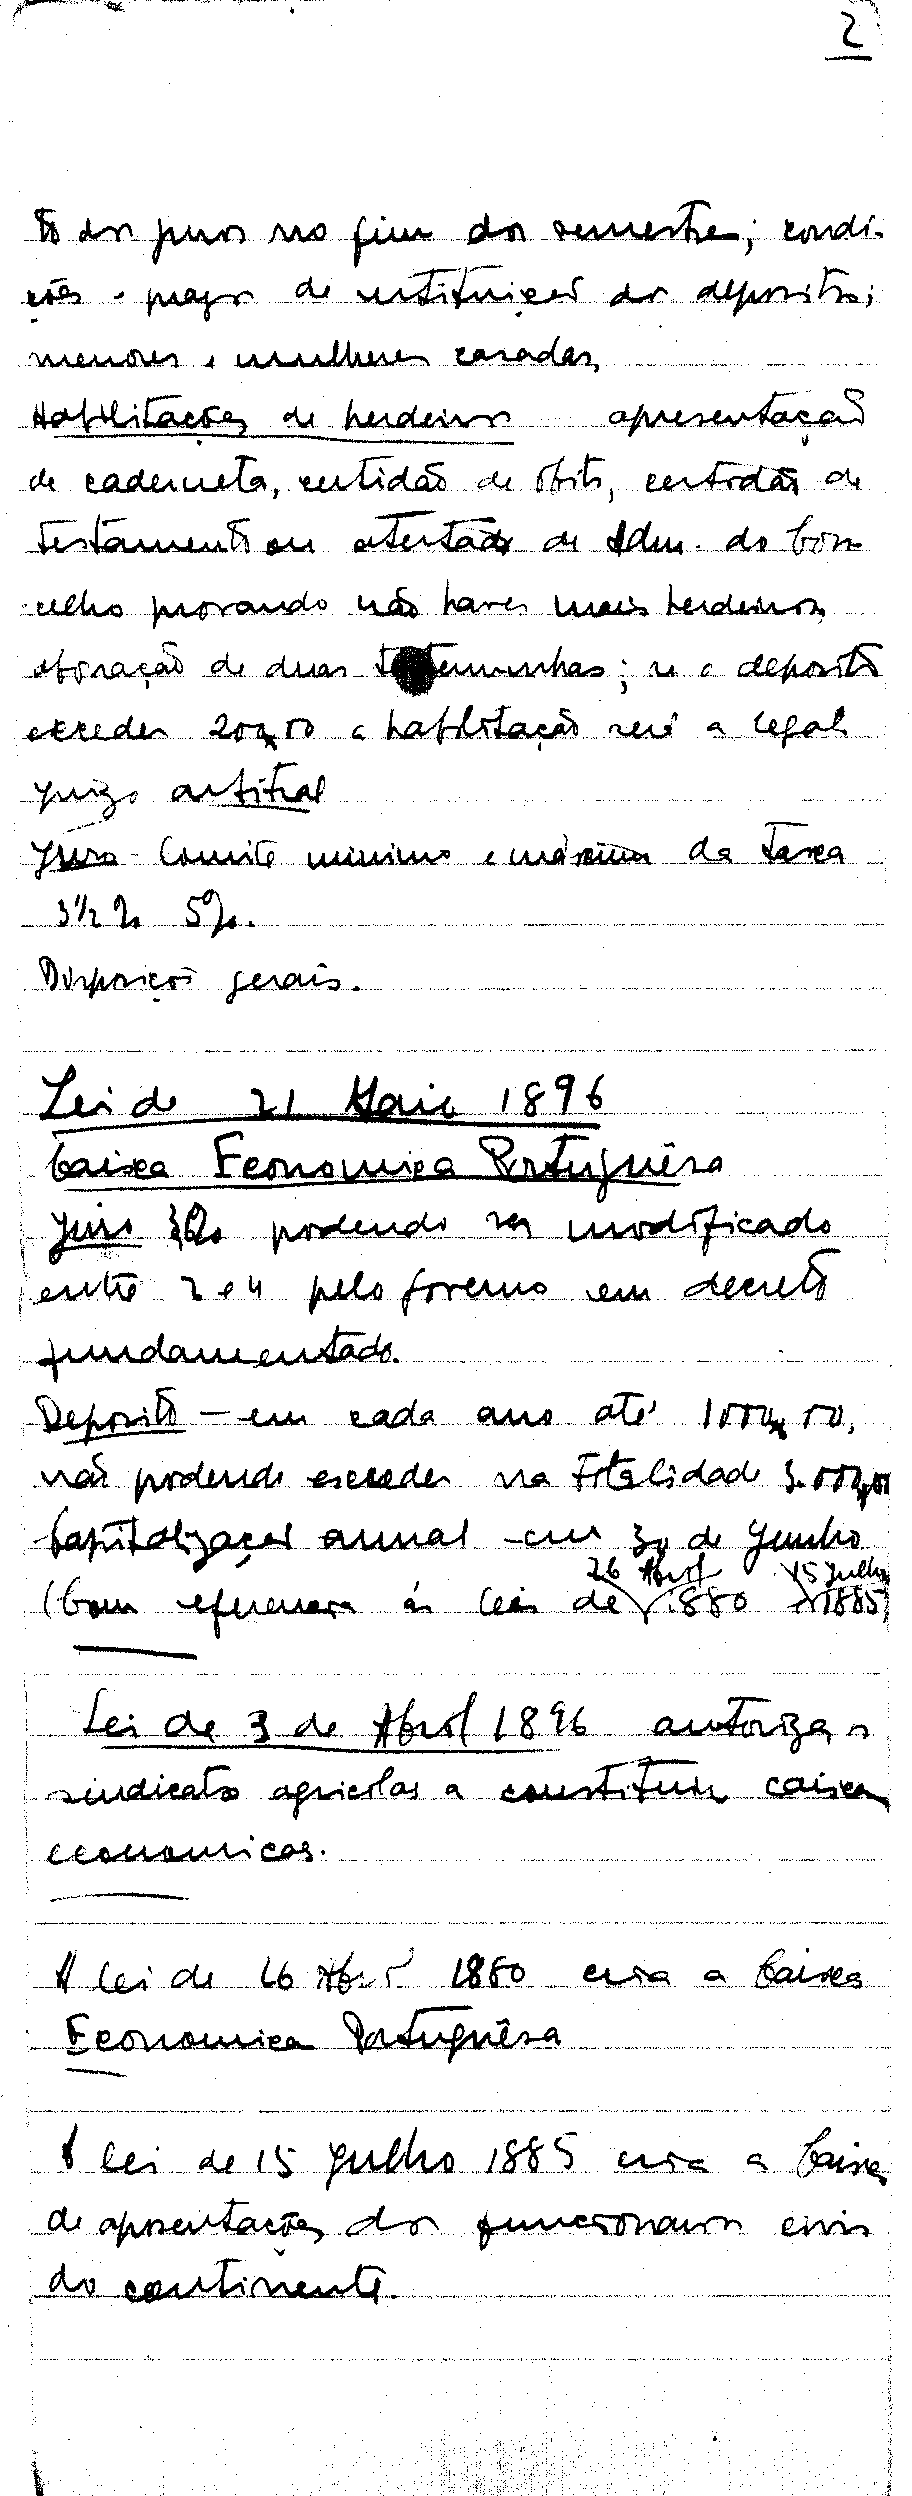 2
to dos juros no fim dos semestres; condi-
ções e prazos de restituições dos depositos;
menores e mulheres casadas,
Habilitações de herdeiros apresentação
de caderneta, certidão de obito, certidão de
testamento ou atestado de Adm. do Con-
celho provando não haver mais herdeiros,
abonação de duas testemunhas; se o deposito
exceder 200$00 a habilitação será a legal
juizo arbitral
Juro - Limite minimo e máximo da taxa
3 1/2 % 5%.
Disposições gerais.
Lei de 21 Maio 1896
Caixa Economica Portuguêsa
Juro 3,6% podendo ser modificado
entre 2 e 4 pelo governo em decreto
fundamentado.
Deposito - em cada ano até 1000$00,
não podendo exceder na totalidade 3.000$00
Capitalizações anual - em 30 de Junho
26 Abril 15 Julho
(Com referencia ás leis de 1880 e 1885)
Lei de 3 de Abril 1896 autoriza os
sindicatos agricolas a constituir caixas
economicas.
A lei de 26 Abril 1880 cria a Caixa
Economica Portuguêsa
A lei de 15 Julho 1885 cria a Caixa
de aposentações dos funcionarios civis
do continente.